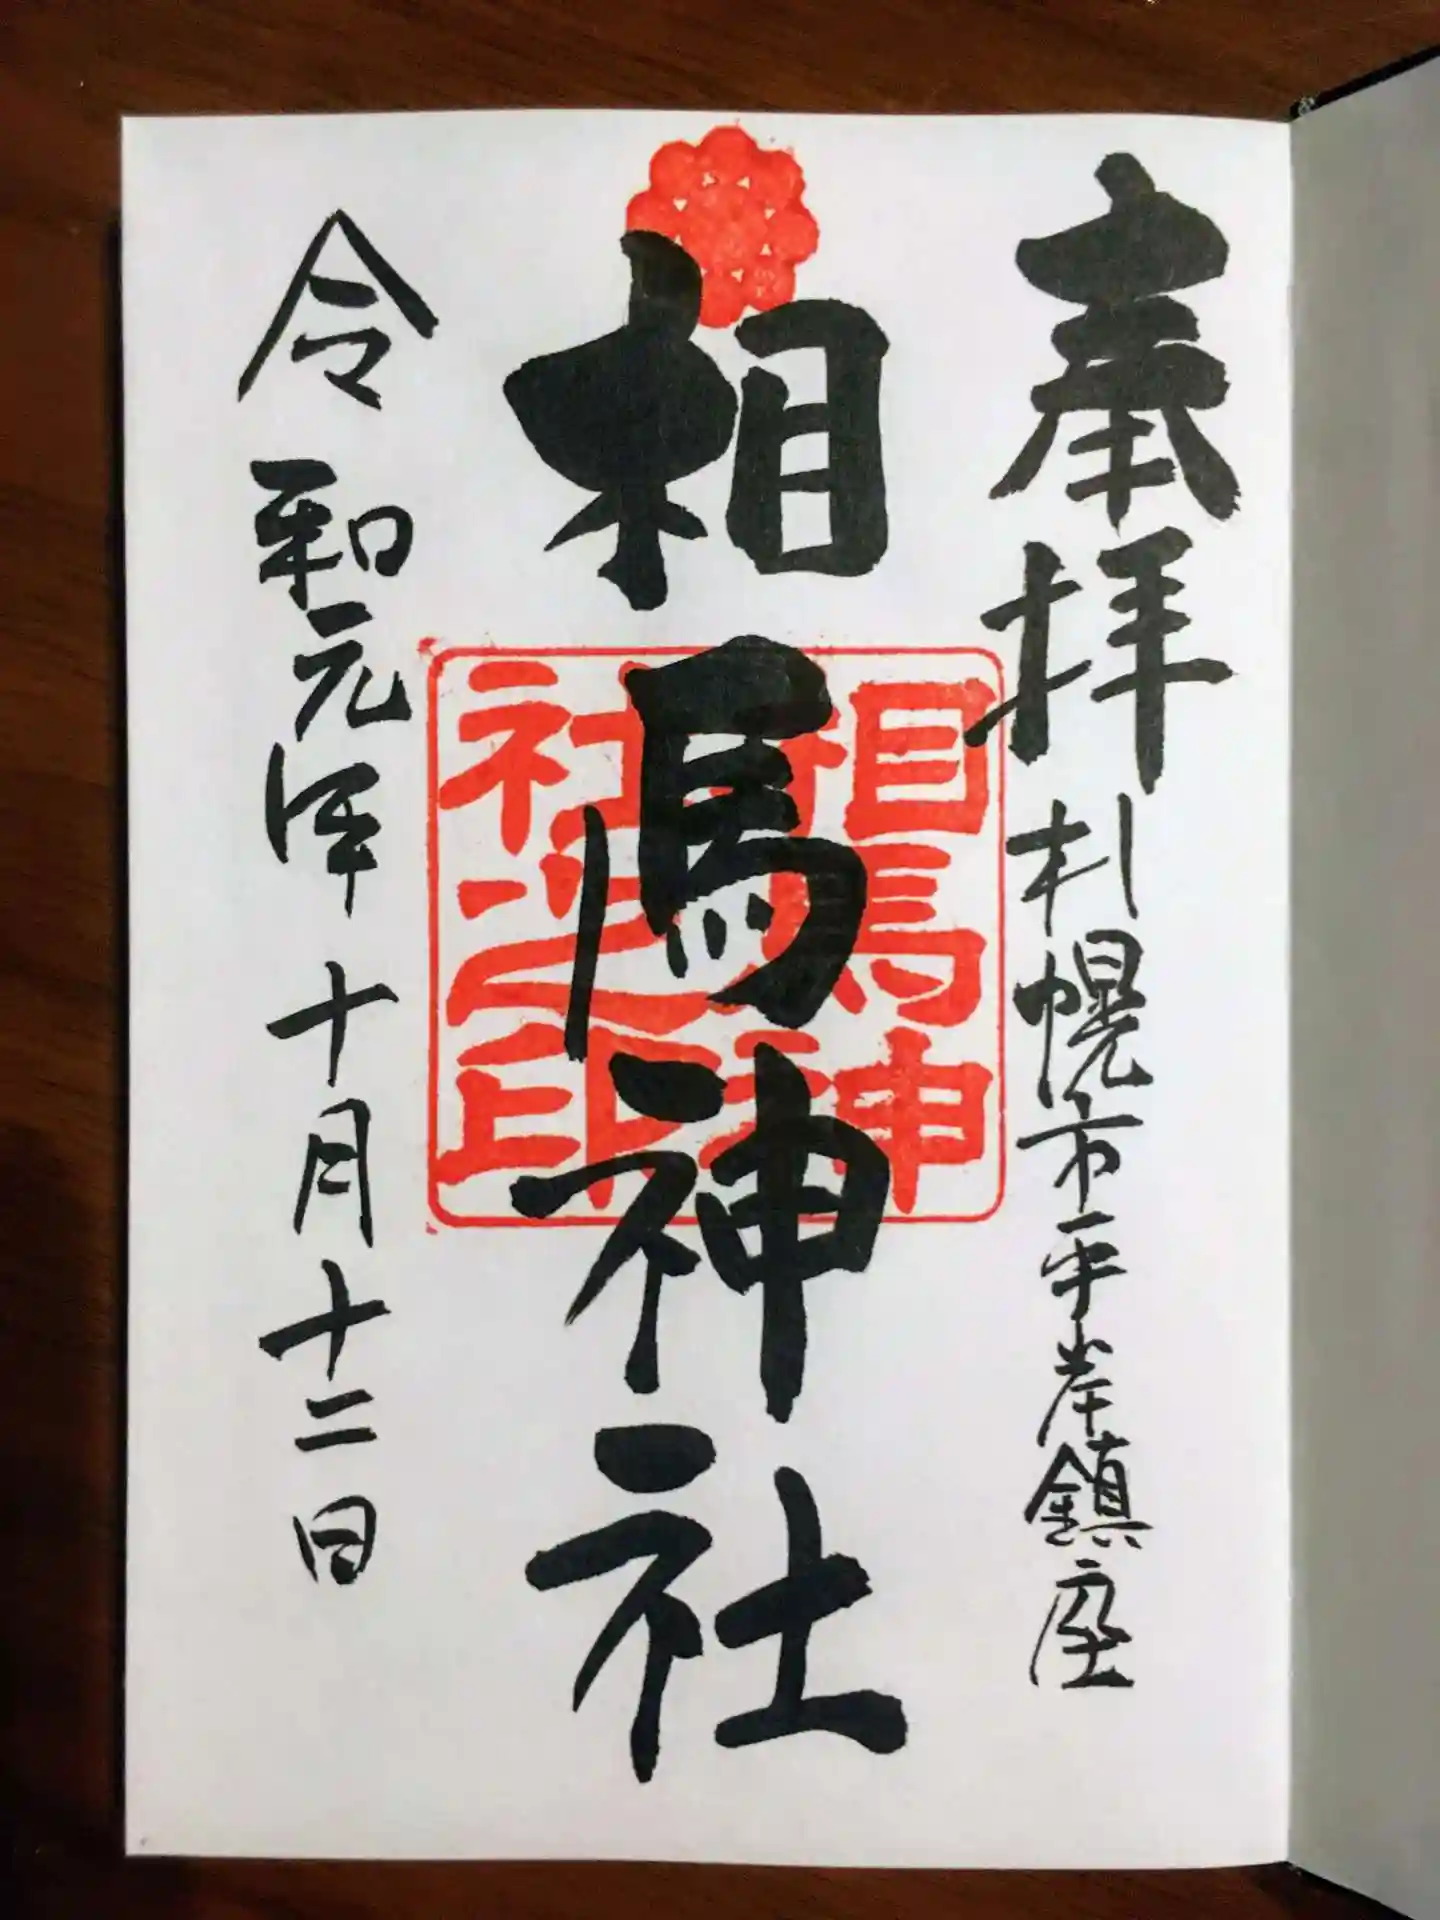 奉拝
札幌市平岸鎮座
相馬神社
相馬神社之印
令和元年十月十二日